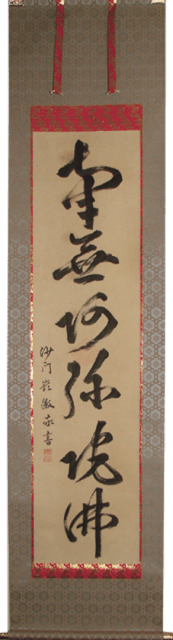 南無阿弥陀佛
沙門 敬書